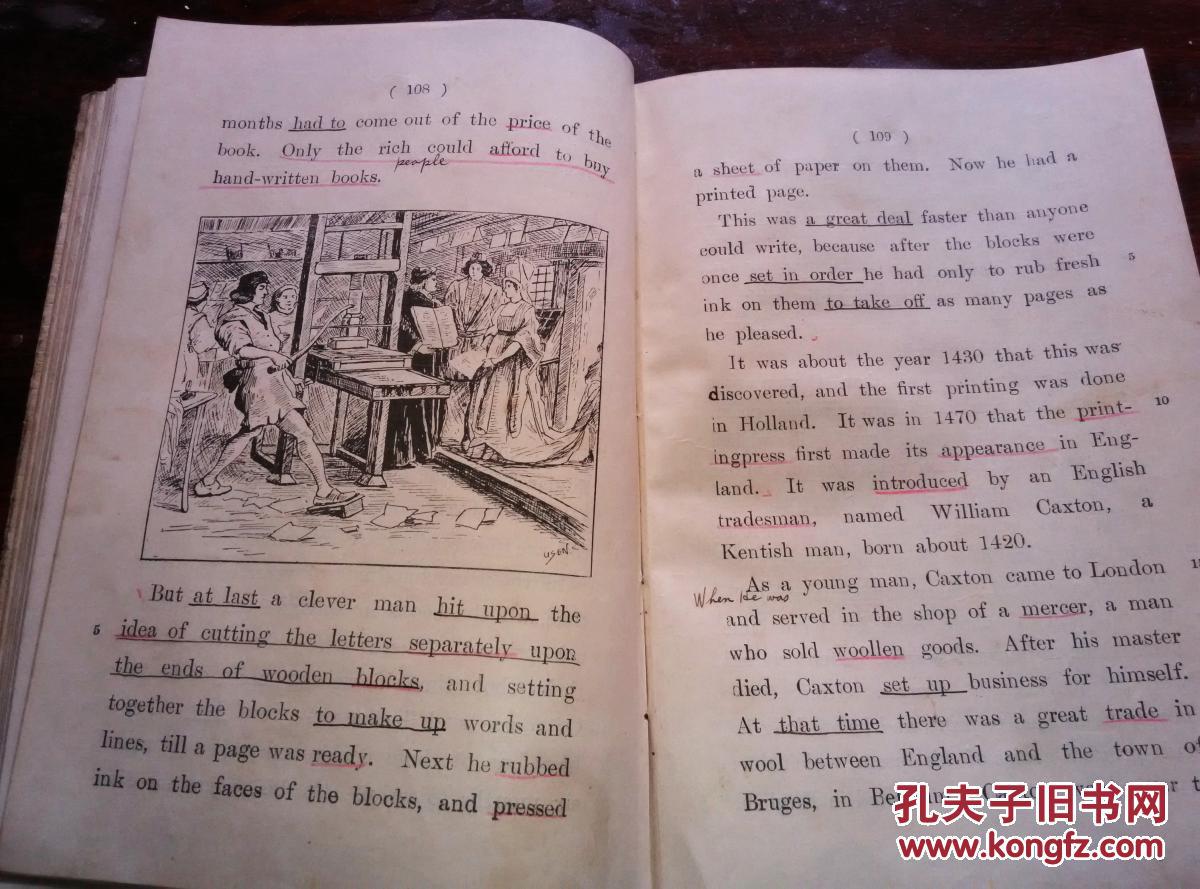 ( 108 )
months had to come out of the price of the
book. Only the rich could afford to buy
people
hand-written books.
USEN
But at last a clever man hit upon the
5 idea of cutting the letters separately upon
the ends of wooden blocks, and setting
together the blocks to make up words and
lines, till a page was ready. Next he rubbed
ink on the faces of the blocks, and pressed
( 109 )
a sheet of paper on them. Now he had a
printed page.
This was a great deal faster than anyone
could write, because after the blocks were
once set in order he had only to rub fresh 5
ink on them to take off as many pages as
he pleased.
It was about the year 1430 that this was
discovered, and the first printing was done
in Holland. It was in 1470 that the print- 10
ingpress first made its appearance in Eng-
land. It was introduced by an English
tradesman, named William Caxton, a
Kentish man, born about 1420.
As a young man, Caxton came to London
When he was
and served in the shop of a mercer, a man
who sold woollen goods. After his master
died, Caxton set up business for himself.
At that time there was a great trade in
wool between England and the town of
Bruges, in
孔夫子旧书网
www.kongfz.com